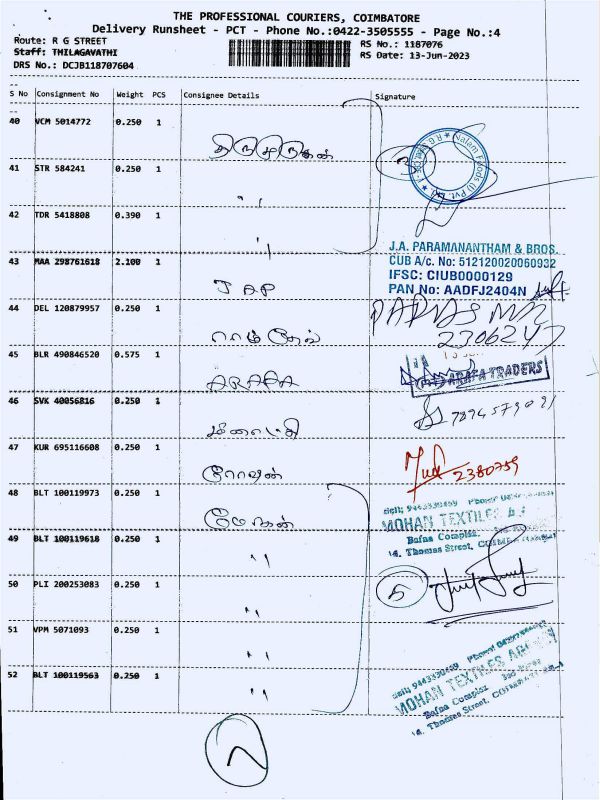 THE PROFESSIONAL COURIERS, COIMBATORE
Delivery Runsheet - PCT - Phone No.:0422-3505555 - Page No.:4
Route: R G STREET
RS No.: 1187076
Staff: THILAGAVATHI
RS Date: 13-Jun-2023
DRS No.: DCJB118707604
S No Consignment No Weight PCS Consignee Details Signature
40 VCM 5014772 0.250 1
Nalam Foods (I) Pvt. Ltd
41 STR 584241 0.250 1 "
42 TDR 5418808 0.390 1 "
J.A. PARAMANANTHAM & BROS.
CUB A/c. No: 512120020060932
IFSC: CIUB0000129
PAN No: AADFJ2404N
43 MAA 298761618 2.100 1 JAP
44 DEL 120879957 0.250 1 ராம்தேவ்
2306247
45 BLR 490846520 0.575 1 ARAFA
ARAFA TRADERS
46 SVK 40056816 0.250 1
47 KUR 695116608 0.250 1 ரோஷன்
2380759
48 BLT 100119973 0.250 1 மோகன்
MOHAN TEXTILES
Bafna Complex
14, Thomas Street,
49 BLT 100119618 0.250 1 "
50 PLI 200253083 0.250 1 "
5
51 VPM 5071093 0.250 1 "
52 BLT 100119563 0.250 1 "
MOHAN TEXTILES
Bafna Complex
14, Thomas Street,
2